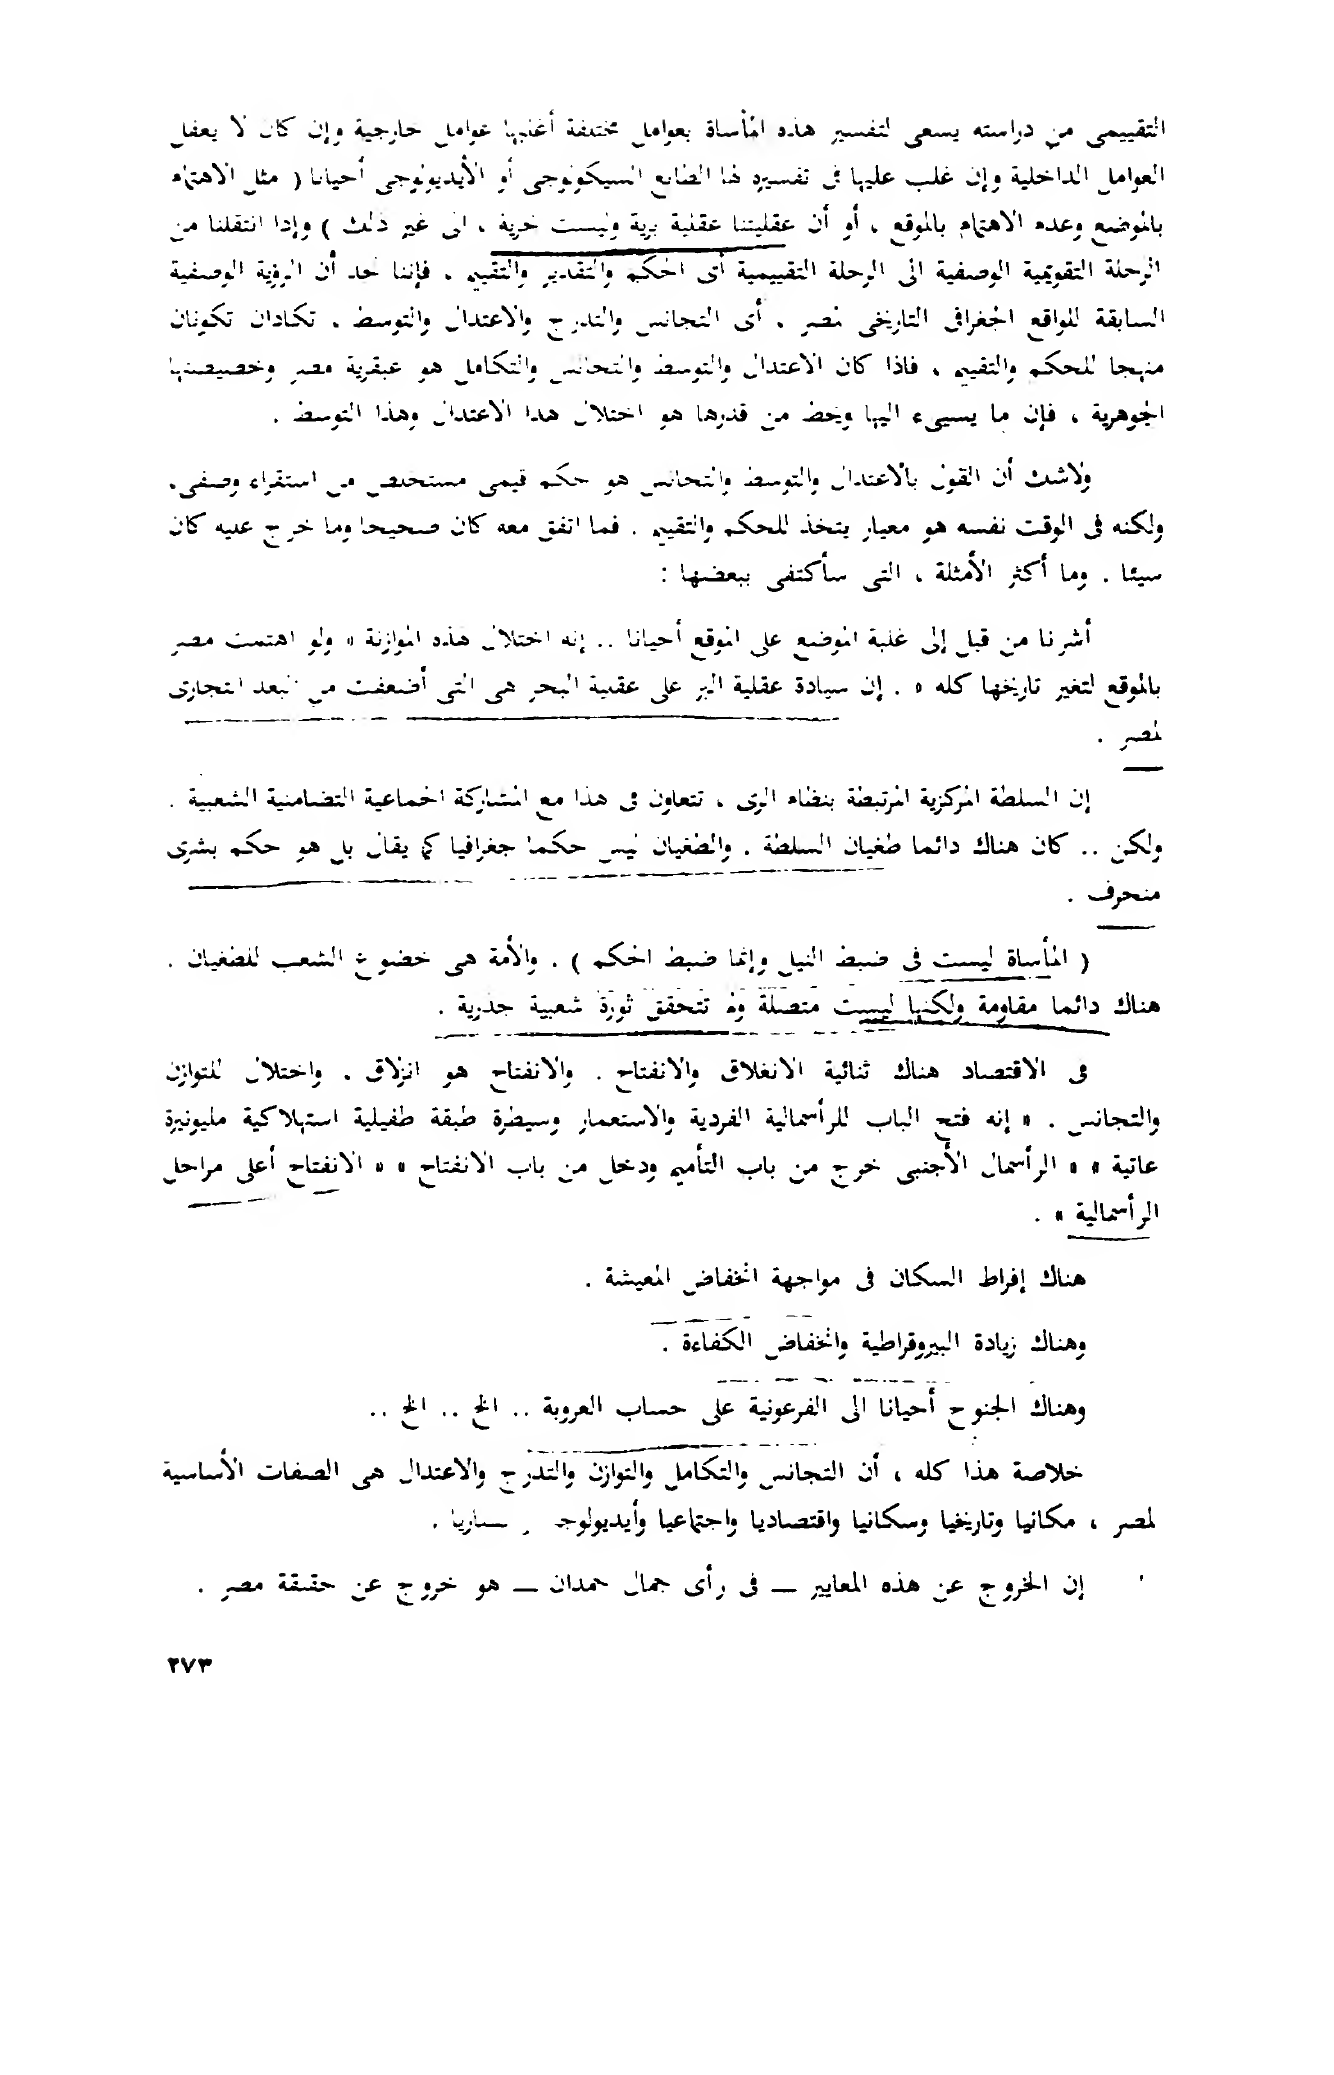 التقييمى من دراسته يسعى لتفسير هذه المأساة بعوامل مختلفة أغلبها عوامل خارجية وإن كان لا يغفل
العوامل الداخلية وإن غلب عليها فى تفسيره لها الطابع السيكولوجى أو الأيديولوجى أحيانا ( مثل الاهتمام
بالموضع وعدم الاهتمام بالموقع ، أو أن عقليتنا عقلية برية وليست بحرية ، الى غير ذلك ) وإذا انتقلنا من
المرحلة التقويمية الوصفية الى المرحلة التقييمية أى الحكم والتقدير والتقييم ، فإننا نجد أن الرؤية الوصفية
السابقة للواقع الجغرافى التاريخى لمصر ، أى التجانس والتدرج والاعتدال والتوسط ، تكادان تكونان
منهجا للحكم والتقييم ، فاذا كان الاعتدال والتوسط والتجانس والتكامل هو عبقرية مصر وخصيصتها
الجوهرية ، فإن ما يسيىء اليها ويحط من قدرها هو اختلال هذا الاعتدال وهذا التوسط .
ولاشك أن القول بالاعتدال والتوسط والتجانس هو حكم قيمى مستخلص من استقراء وصفى،
ولكنه فى الوقت نفسه هو معيار يتخذ للحكم والتقييم . فما اتفق معه كان صحيحا وما خرج عليه كان
سيئا . وما أكثر الأمثلة ، التى سأكتفى ببعضها :
أشرنا من قبل إلى غلبة الموضع على الموقع أحيانا .. إنه اختلال هذه الموازنة « ولو اهتمت مصر
بالموقع لتغير تاريخها كله » . إن سيادة عقلية البر على عقلية البحر هى التى أضعفت من البعد التجارى
لمصر .
إن السلطة المركزية المرتبطة بنظام الرى ، تتعاون فى هذا مع المشاركة الجماعية التضامنية الشعبية .
ولكن .. كان هناك دائما طغيان السلطة . والطغيان ليس حكما جغرافيا كما يقال بل هو حكم بشرى
منحرف .
( المأساة ليست فى ضبط النيل وإنما ضبط الحكم ) . والأمة هى خضوع الشعب للطغيان .
هناك دائما مقاومة ولكنها ليست متصلة ولم تتحقق ثورة شعبية جذرية .
فى الاقتصاد هناك ثنائية الانغلاق والانفتاح . والانفتاح هو انزلاق . واختلال للتوازن
والتجانس . « إنه فتح الباب للرأسمالية الفردية والاستعمار وسيطرة طبقة طفيلية استهلاكية مليونيرة
عاتية » « الرأسمال الأجنبى خرج من باب التأميم ودخل من باب الانفتاح » « الانفتاح أعلى مراحل
الرأسمالية » .
هناك إفراط السكان فى مواجهة انخفاض المعيشة .
وهناك زيادة البيروقراطية وانخفاض الكفاءة .
وهناك الجنوح أحيانا الى الفرعونية على حساب العروبة .. الخ .. الخ ..
خلاصة هذا كله ، أن التجانس والتكامل والتوازن والتدرج والاعتدال هى الصفات الأساسية
لمصر ، مكانيا وتاريخيا وسكانيا واقتصاديا واجتماعيا
إن الخروج عن هذه المعايير ــ فى رأى جمال حمدان ــ هو خروج عن حقيقة مصر .
٢٧٣